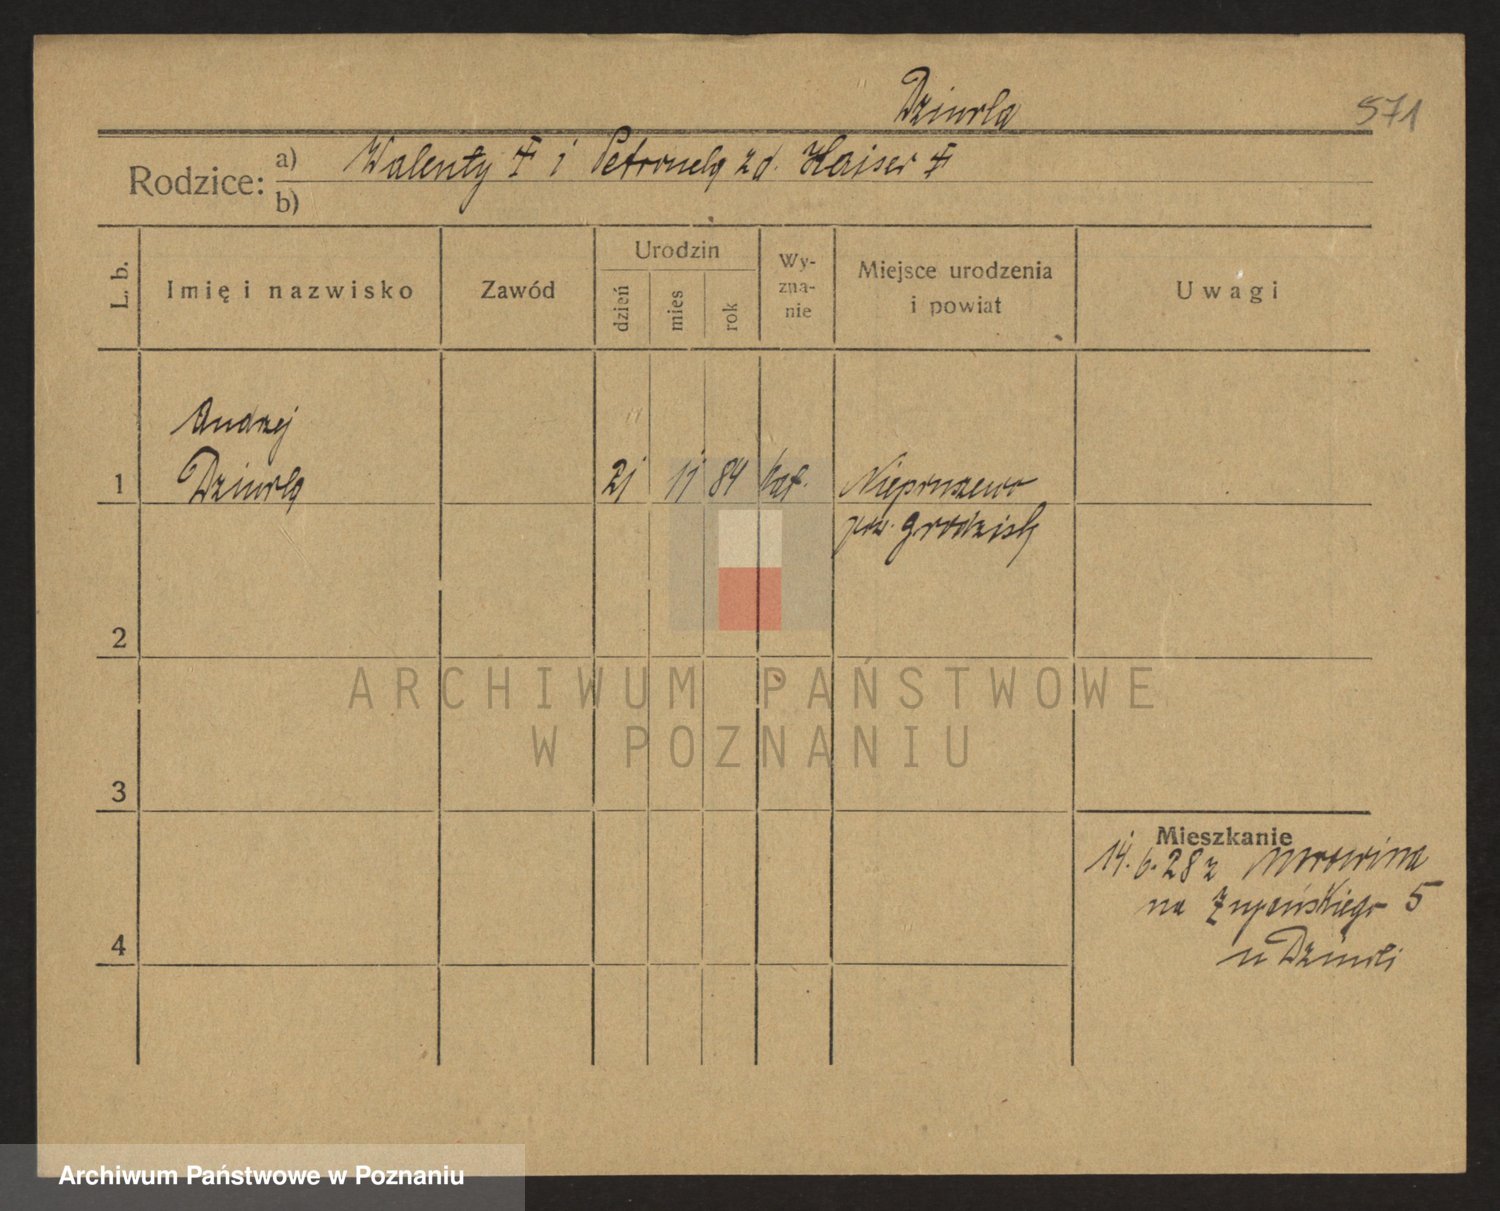 Dziurla
571
Rodzice:
a) Walenty ✝ i Petronela zd. Kaiser ✝
b)
L. b.
Imię i nazwisko
Zawód
Urodzin
dzień
mies
rok
Wy-
zna-
nie
Miejsce urodzenia
i powiat
Uwagi
Andrzej
1 Dziurla 21 11 84 kat. Niepruszewo
pow. Grodzisk
2
ARCHIWUM PAŃSTWOWE
W POZNANIU
3
Mieszkanie
14.6.28 z Mrowina
na Żupańskiego 5
u Dziurli
4
Archiwum Państwowe w Poznaniu